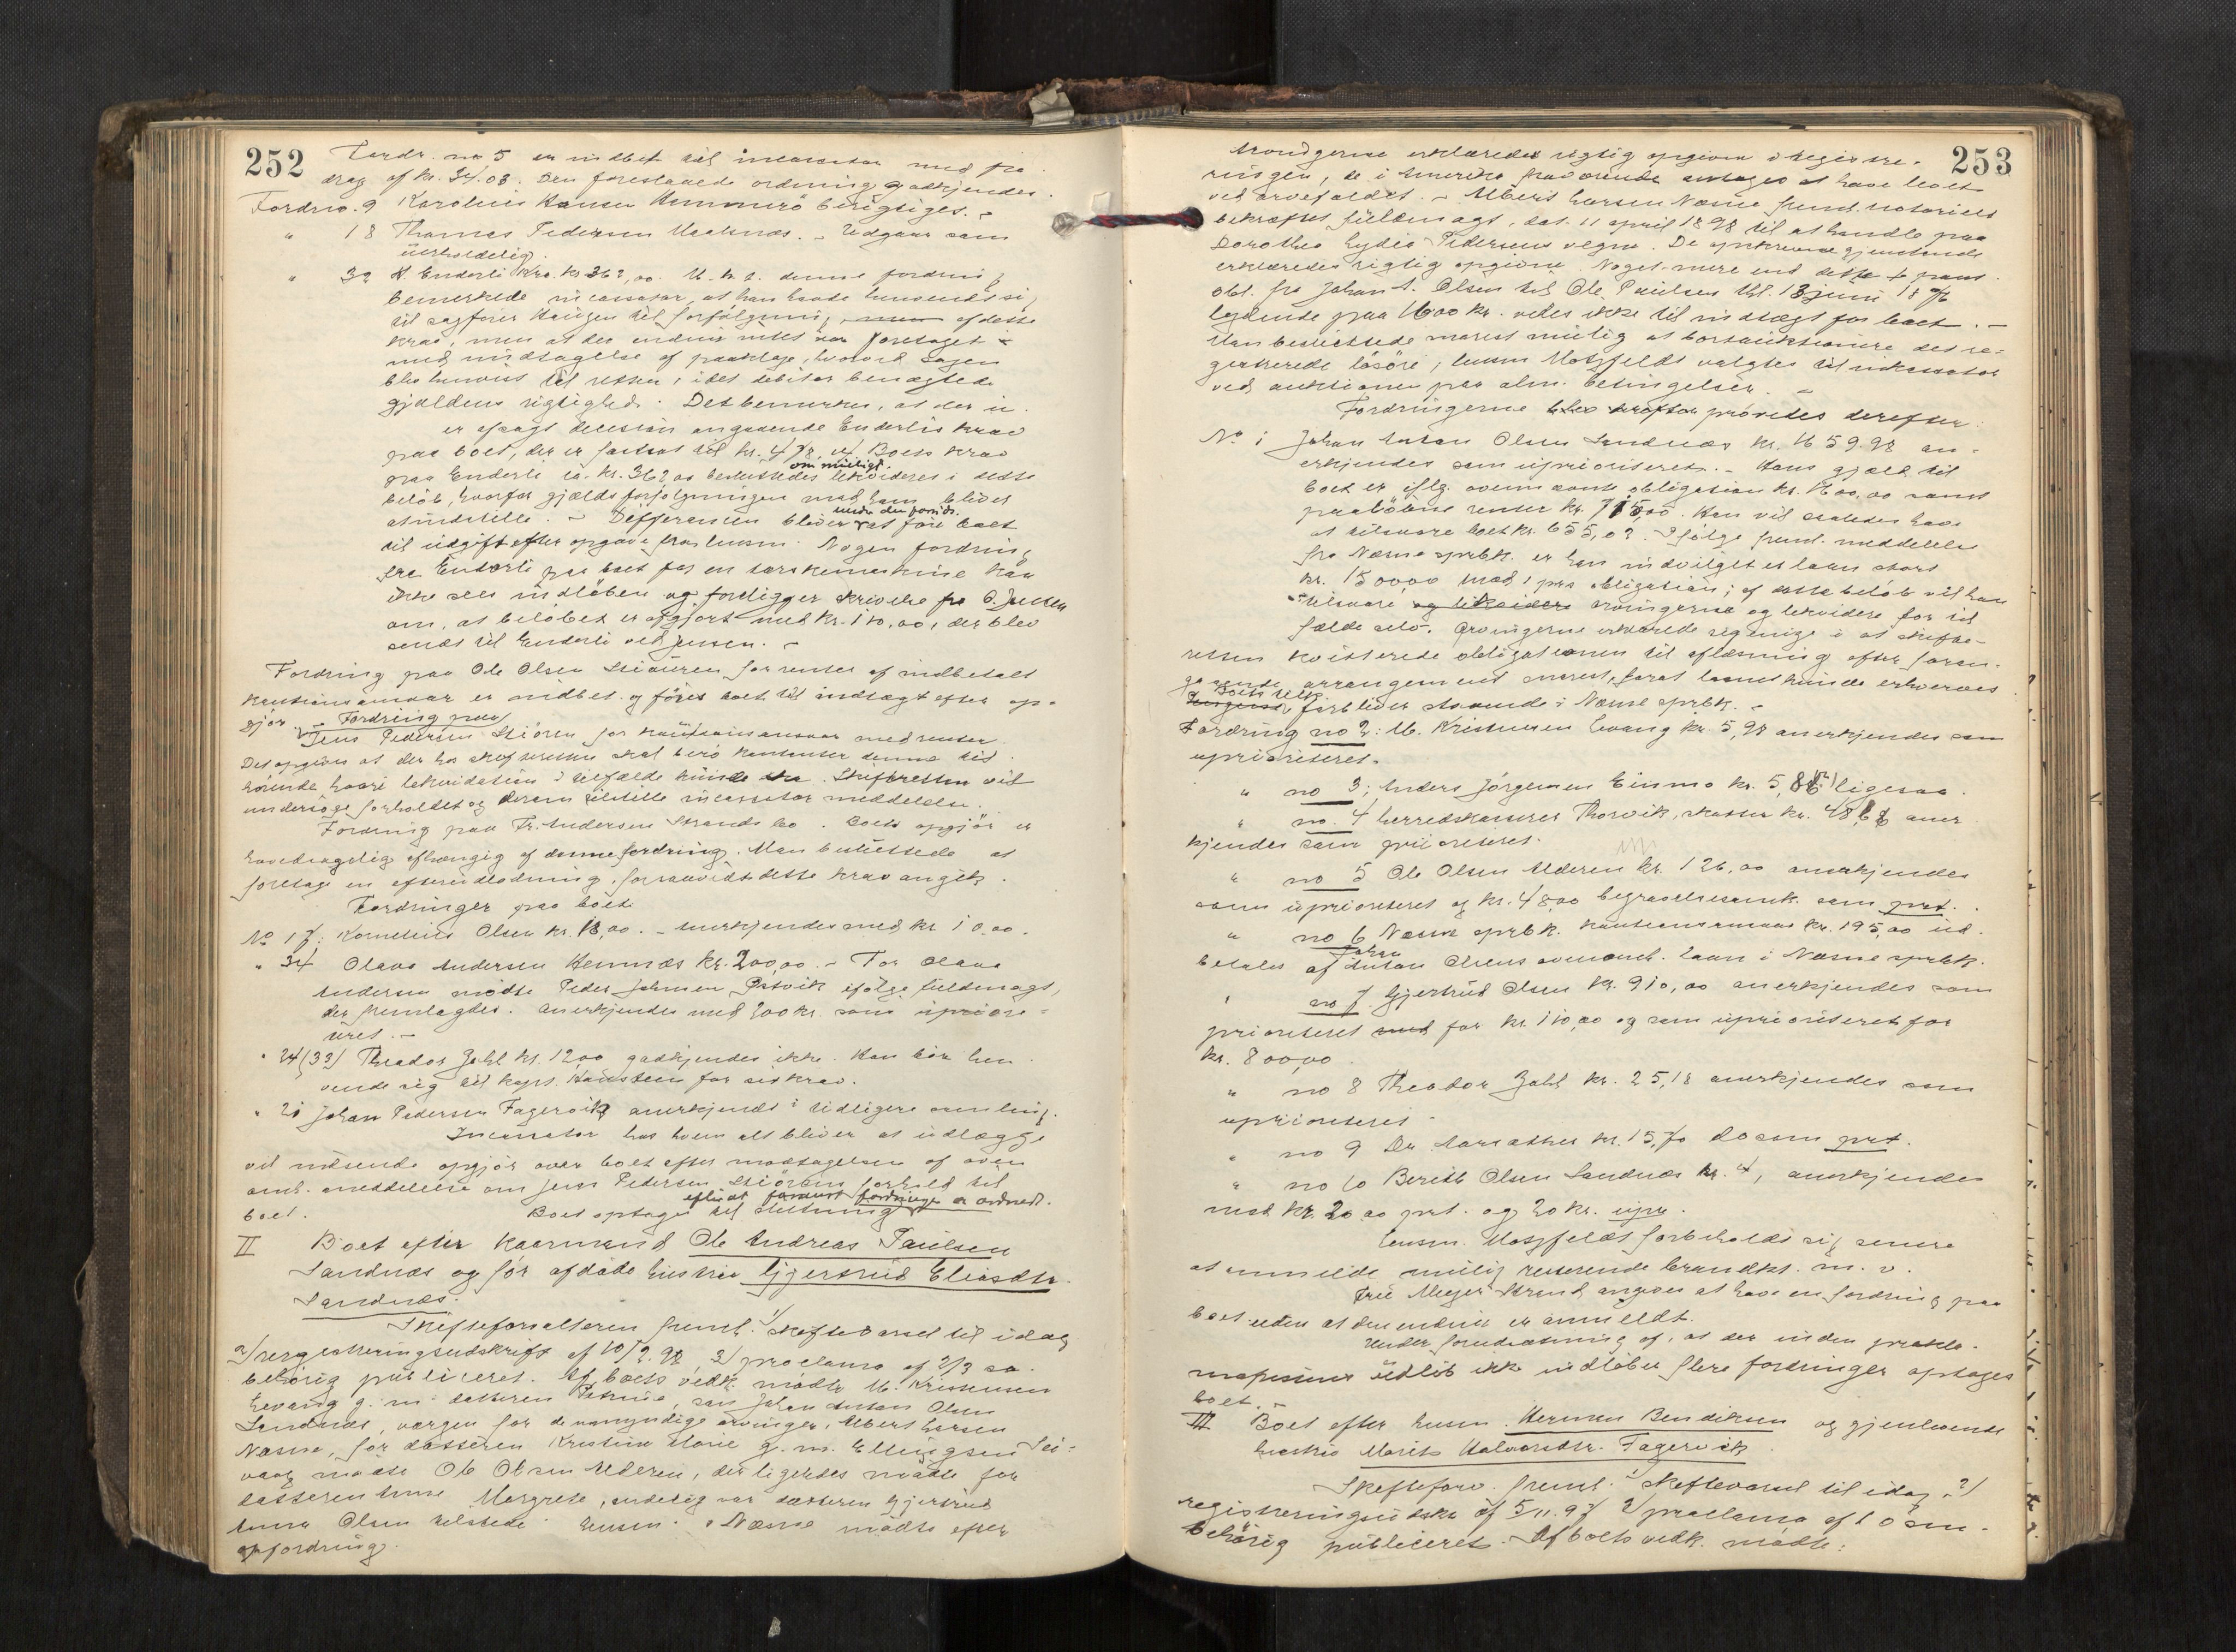 252
Fordr. no 5 er indbet. til incassator med fra
drag af kr. 34.03. Den foreslaaede ordning godkjendes.
Fordr no. 9 Karolius Hansen Hemmerö berigtiges. -
" 18 Thomas Pedersen . - Udgaar som
uerholdelig.
" 32 H Enderli kra. kr 362,00. denne fordring
bemerkede incassator, at han havde henvendt sig
til sagfører Haugen til forfølgning af dette
krav, men at der endnu intet var foretaget
med undtagelse af paaklage, hvorved sagen
blev henvist til retten, idet debitor benægtede
gjældens rigtighed. Det bemerkes, at der
er afsagt decision angaaende Enderlis krav
paa boet, der er fastsat til kr. 478,04. Boets krav
om muligt.
paa Enderli ca. kr. 362,00 besluttedes likvideres i dette
beløb, hvorfor gjældsforfølgningen mod ham bliver
under den foruds.
at indstille. - Differansen bliver at føre boet
til udgift efter opgave fra lensm. Nogen fordring
fra Enderli paa boet for en tærskemaskine kan
ikke sees indløben og foreligger skrivelse fra C. Jensen
om, at beløbet er opgjort med kr. 110,00, der blev
sendt til Enderli ved Jensen. -
Fordring paa Ole Olsen Skiauren for renter af indbetalt
kautionsansvar er indbet. og føres boet til indtægt efter op-
gjør. - Fordring paa
Jens Pedersen Skiören for kautionsansvar med renter.
Det opgives at der hos skifteretten skal bero kontanter denne til-
hørende, hvori likvidation i tilfælde kunde ske. Skifteretten vil
undersøge forholdet og derom tilstille incassator meddelelse.
Fordring paa Fr. Andersen Strands bo. Boets opgjør er
hovedsagelig afhængig af denne fordring. Man besluttede at
foretage en efterudlodning, forsaavidt dette krav angik.
Fordringer paa boet.
No 17: Kornelius Olsen kr. 18,00. - Anerkjendes med kr 10.00.
" 34 Olava Andersen Hemnæs kr. 200,00. - For Olava
Andersen mödte Peder Johnsen ifølge fuldmagt,
der fremlagdes. Anerkjendes med 200 kr. som uprior-
teret. -
" 24 (33) Theodor Zahl kr. 12,00 godkjendes ikke. Han bør hen-
vende sig til kapt. Haustein for sit krav.
" 21 Johan Pedersen Fagervik anerkjendt i tidligere samling.
Incassator hos hvem alt bliver at udlægge
vil indsende opgjør over boet efter modtagelsen af oven
omh. meddelelse om Jens Pedersen Skiörens forhold til
efterat fornævnt fordringe er ordnede.
boet. Boet optages til slutning
II Boet efter kaarmand Ole Andreas Paulsen
Sandnæs og før afdøde hustru Gjertrud Eliasdtr.
Sandnæs.
Skifteforvalteren freml. 1/ skiftevarsel til idag
2/ registreringsudskrift af 10/2 98, 3/ proclama af 2/3 s.a.
behørig publiceret. Af boets vedk. mødte M. Kristensen
Levang g. m. datteren Petrine, søn Johan Anton Olsen
Sandnæs, værgen for de umyndige arvinger, Albert Larsen
Næsna, for datteren Kristine Marie g. m. Ellingsen Sei-
vaag mødte Ole Olsen Alderen, der ligeledes mødte for
datteren Anne Margrete, endelig var datteren Gjertrud
Anna Olsen tilstede. Lensm. i Næsne mødte efter
opfordring.
253
Arvingerne erklæredes rigtig opgiven i registre-
ringen, de i Amerika fraværende antages at have levet
ved arvefaldet. - Albert Larsen Næsne freml. notarielt
bekræftet fuldmagt, dat. 11 april 1898 til at handle paa
Dorothea Lydia Pedersens vegne. De opskrevne gjenstande
erklæredes rigtig opgivne. Noget mere end dette + pant
obl. fra Johan A. Olsen til Ole Paulsen thl. 13 juni 1896
lydende paa 1600 kr. vides ikke til indtægt for boet. -
Man besluttede snarest mulig at bortauktionere det re-
gistrerede løsøre; lensm Motzfeldt valgtes til inkassator
ved auktionen paa alm. betingelser. -
Fordringerne blev prövedes derefter:
No 1 Johan Anton Olsen Sandnæs kr. 1659.98 an-
erkjendes som uprioriteret. - Hans gjæld til
boet er iflg. ovennævnte obligation kr. 1600,00 samt
paaløbne renter kr. 715,00. Han vil saaledes have
at tilsvare boet kr. 655,02. - Ifølge freml. meddelelse
fra Næsne sprbk. er han indvilget et laan stort
kr. 1500,00 mod 1 prs obligation; af dette beløb vil han
tilsvare og likvidere arvingerne og likvidere for til-
fælde selv. Arvingerne erklærede sig enige i at skifte-
retten kvitterede obligationen til aflæsning efter foran-
gaaende arrangement snarest, forat laanet kunde erhverves
Boets tilk.
forbliver staaende i Næsne sprbk. -
Fordring no 2: M. Kristensen Levang kr. 5,98 anerkjendes som
uprioriteret.
" no 3; Anders Jörgensen Einmo kr. 5,85 ligesaa.
" no. 4 herredskasserer Thorvik, skatter kr. 48,68 aner
kjendes som prioriteret.
" no 5 Ole Olsen Alderen kr. 126,00 anerkjendes
som uprioriteret og kr. 48,00 begravelsesomk. som prt.
" no 6 Næsne sprbk. kautionsansvar kr. 195,00 ud-
Johan
betales af Anton Olsens ovenomh. laan i Næsne sprbk.
" no 7. Gjertrud Olsen kr. 910,00 anerkjendes som
prioriteret med for kr. 110,00 og som uprioriteret for
kr. 800,00.
" no 8 Theodor Zahl kr. 25,18 anerkjendes som
uprioriteret -
" no 9 Dr. Aarsæther kr. 15,70 do som prt.
" no 10 Bereth Olsen Sandnæs kr. 4, anerkjendes
med kr. 20,00 prt. og 20 kr. upr.
Lensm. Motzfeldt forbeholdt sig senere
at anmelde mulig resterende brandkt. m. v.
Fru Meyer Strand angives at have en fordring paa
boet uden at den endnu er anmeldt.
Under forudsætning af, at der inden prokla-
mafristens udløb ikke indløber flere fordringer optages
boet. -
III Boet efter husm. Herman Bendiksen og gjenlevende
hustru Marit Halvorsdtr. Fagervik
Skifteforv. freml. 1/ skiftevarsel til idag, 2/
registreringsudskr af 5/11 97 3/ proclama af 10 sm.
behörig publiceret. Af boets vedk. mødte: